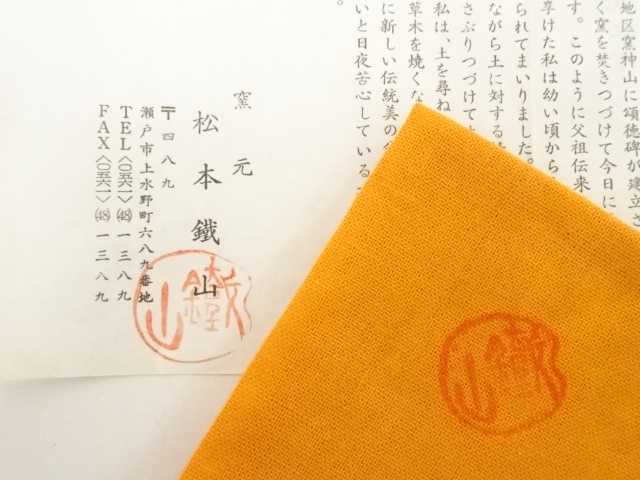 地区窯神山に頌徳碑が建立さ
く窯を焚きつづけて今日に
す。このように父祖伝来
享けた私は幼い頃から
られてまいりました。
ながら土に対する
さぶりつづけて
私は、土を尋ね
草木を焼くな
に新しい伝統美の
いと日夜苦心している
。
窯元
松本鐵山
〒四八九
瀬戸市上水野町六八九番地
TEL〈〇五六一〉(48)一三八九
FAX〈〇五六一〉(48)一三八九
鐵山
鐵山